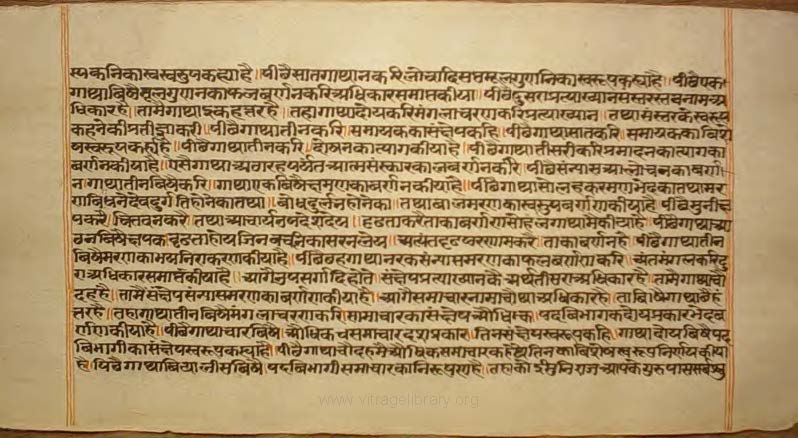 स्पकनिकास्वस्वरुपकह्याहै॥ पीछैसातगाथानकरिलोचादिसप्तमूलगुणनिकास्वरूपकह्याहै॥ पीछैएक
गाथाविषैमूलगुणनकाफलवर्णनकरिअधिकारसमाप्तकीया॥ पीछैदुसराप्रत्याख्यानसंस्तरस्तवनामअ
धिकारहै॥ तामैगाथाइकहत्तरहै॥ तहांगाथादोयकरिमंगलाचरणकरिप्रत्याख्यान॥ तथासंस्तरकेस्वरूप
कहनेकीप्रतीज्ञाकरी॥ पीछैगाथातीनकरि॥ सामायककासंक्षेपकहि॥ पीछैगाथासातकरि॥ समायककाविशे
षस्वरूपकह्योहै॥ पीछैगाथातीनकरि॥ दोषनकात्यागकीयाहै॥ पीछैगाथातीसरीकरिप्रमादनकात्यागका
वर्णनकीयाहै॥ एसैगाथाअठारहपर्यंतआत्मसंस्कारकालवर्णनकरि॥ पीछैसंन्यासआलोचनकावर्णन
न॥ गाथातीनविषैकरि॥ गाथाएकविषैक्षमणकावर्णनकीयाहै॥ पीछैगाथासोलहकरमरणभेदकातथामर
णविधनेदेवदुर्ग तिहोनेकातथा॥ बोधदुर्लनहोनेका॥ तथाबालमरणकास्वरुपवर्णणकीयाहै पीछैमुनीक्ष
पकरै चिंतवनकरै॥ तथाआचार्यनपदेशदेय॥ दृढताकरैताकावर्णणसोहलगाथामैकीयाहै॥ पीछैगाथाआ
ठनविषैक्षपकदृढताहोयजिनवचनकासरनलेय॥ अत्यंतदृढपरणामकरै॥ ताकावर्णनहै॥ पीछैगाथातीन
विषैमरणकाभयनिराकरणकीयाहै॥ पीछैछहगाथानरकसंन्यासमरणकाफलवर्णणकरि॥ अंतमंगलकरिदु
राअधिकारसमाप्तकीयाहै॥ आगैनुपसर्गादिहोतै॥ संक्षेपप्रत्याख्यानकै अर्थतीसराअधिकारहै॥ तामैगाथाचौ
दहहै॥ तामैसंक्षेपसंन्यासमरणकावर्णणकीयाहै॥ आगैसमाचारनामाचौथाअधिकारहै॥ ताविषैगाथाछैहं
त्तरहै॥ तहांगाथातीनविषैमंगलाचरणकरि॥ समाचारकासंक्षेपऔधिक॥ पदविभागकदोयप्रकारभेदव
र्णणकीयाहै॥ पीछैगाथाचारविषै॥ औधिकचसमाचारदशप्रकार॥ तिनसंक्षेपस्वरूपकहि॥ गाथादोयविषैपद
विभागीकासंक्षेपस्वरूपकह्याहै॥ पीछैगाथाचौदहमैऔधिकसमाचारकहै तिनकाविशेषस्वरूपनिर्णयकीया
है॥ पिछैगाथाबियालीसविषै॥ पदविभागीसमाचारकानिरूपणहै॥ तहांकोईमुनिराजआपकेगुरुपास
www.vitragelibrary.org